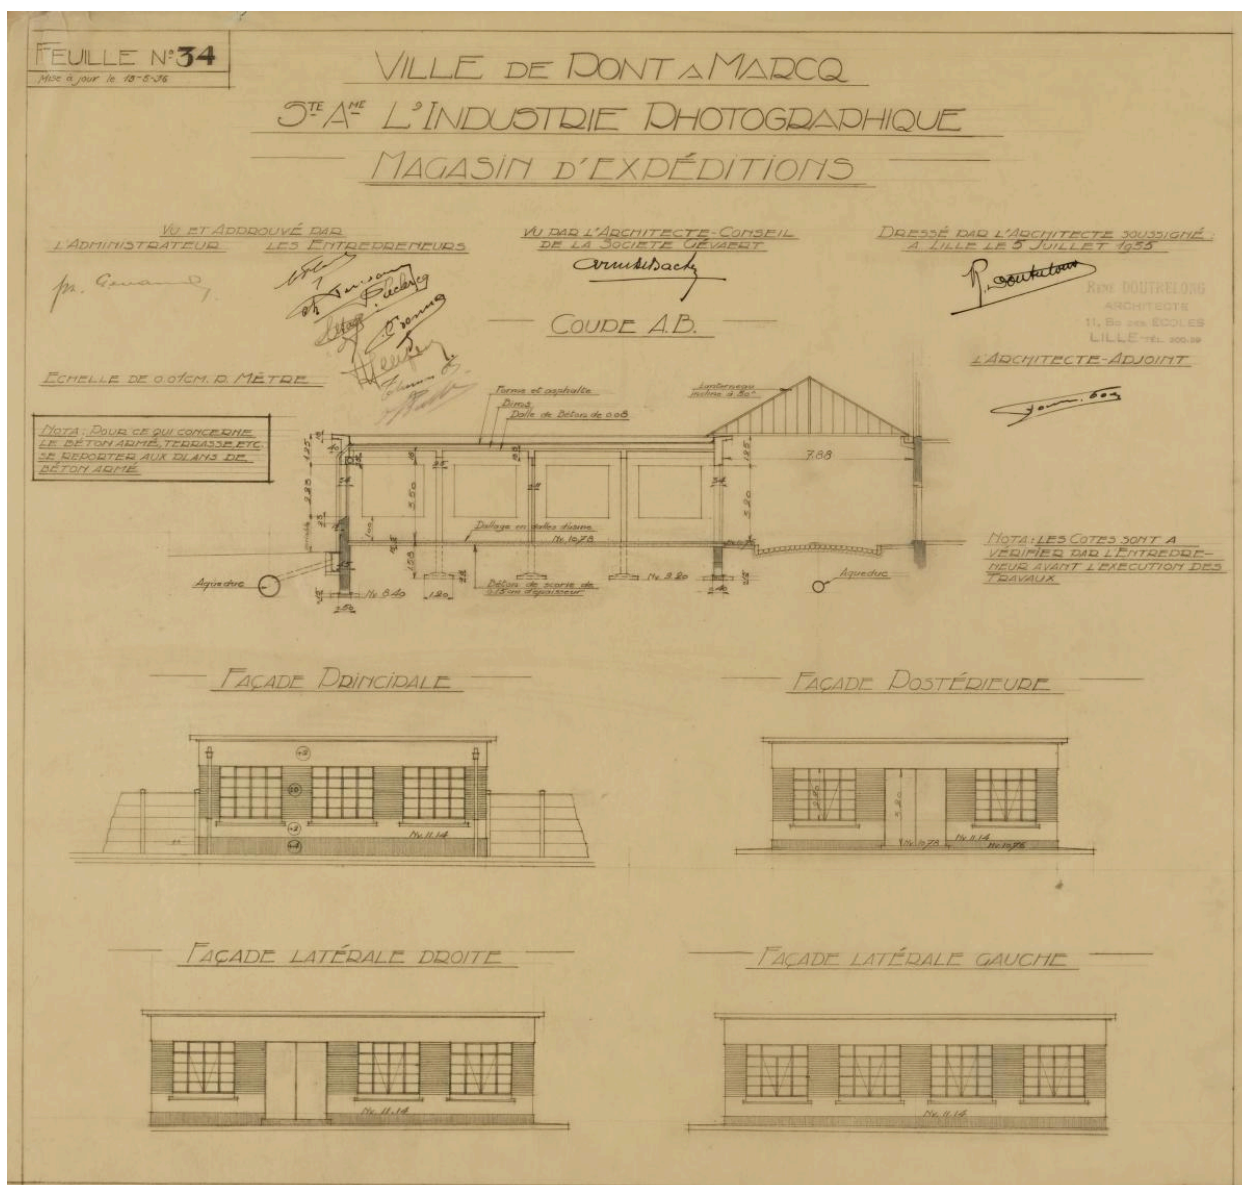 FEUILLE Nº 34
Mise à jour le 18-5-36
VILLE DE PONT A MARCQ
STE AME L'INDUSTRIE PHOTOGRAPHIQUE
MAGASIN D'EXPÉDITIONS
VU ET APPROUVÉ PAR
L'ADMINISTRATEUR LES ENTREPRENEURS
VU PAR L'ARCHITECTE-CONSEIL
DE LA SOCIETE GÉVAERT
DRESSÉ PAR L'ARCHITECTE SOUSSIGNÉ:
A LILLE LE 5 JUILLET 1935
RENÉ DOUTRELONG
ARCHITECTE
11, BD DES ÉCOLES
LILLE
L'ARCHITECTE-ADJOINT
COUPE A.B.
ECHELLE DE 0.01CM. P. MÈTRE
NOTA: POUR CE QUI CONCERNE
LE BÉTON ARMÉ, TERRASSE, ETC.
SE REPORTER AUX PLANS DE
BÉTON ARMÉ
Forme et asphalte
Dalle de Béton de 0.08
Lanterneau
incliné à 30°
7.88
1.25
2.25
3.50
3.20
1.25
1.00
1.58
Dallage en dalles d'usine
Nv. 10,78
Aqueduc
Nv. 8.40
1.20
Béton de scorie de
0.15cm d'épaisseur
Nv. 9.20
Aqueduc
NOTA: LES COTES SONT A
VÉRIFIER PAR L'ENTREPRE-
NEUR AVANT L'EXECUTION DES
TRAVAUX
FAÇADE PRINCIPALE
Nv. 11.14
FAÇADE POSTÉRIEURE
3.20
Nv. 11.14
Nv. 10,78
FAÇADE LATÉRALE DROITE
Nv. 11.14
FAÇADE LATÉRALE GAUCHE
Nv. 11.14